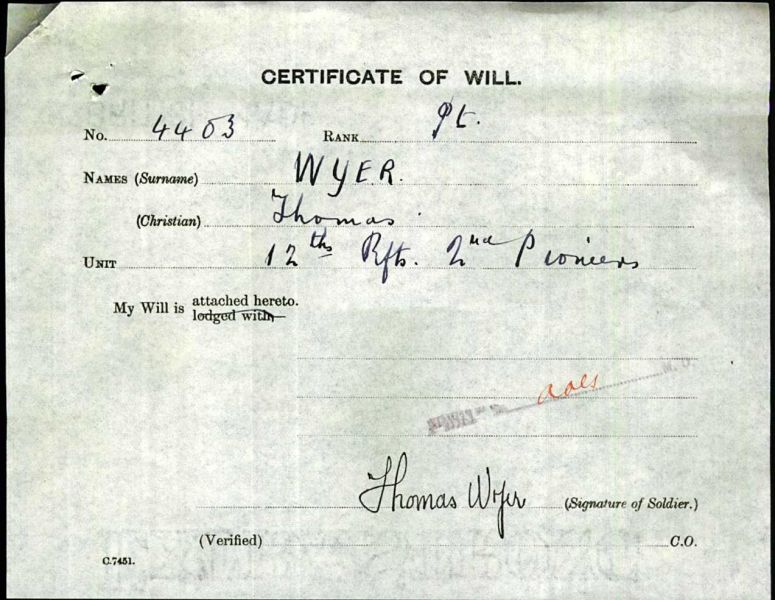 CERTIFICATE OF WILL.
No. 4403 RANK Pt.
NAMES (Surname) WYER.
(Christian) Thomas
UNIT 12ths Rfts. 2nd Pioneers
My Will is attached hereto.
lodged with
Thomas Wyer (Signature of Soldier.)
(Verified) C.O.
C.7451.